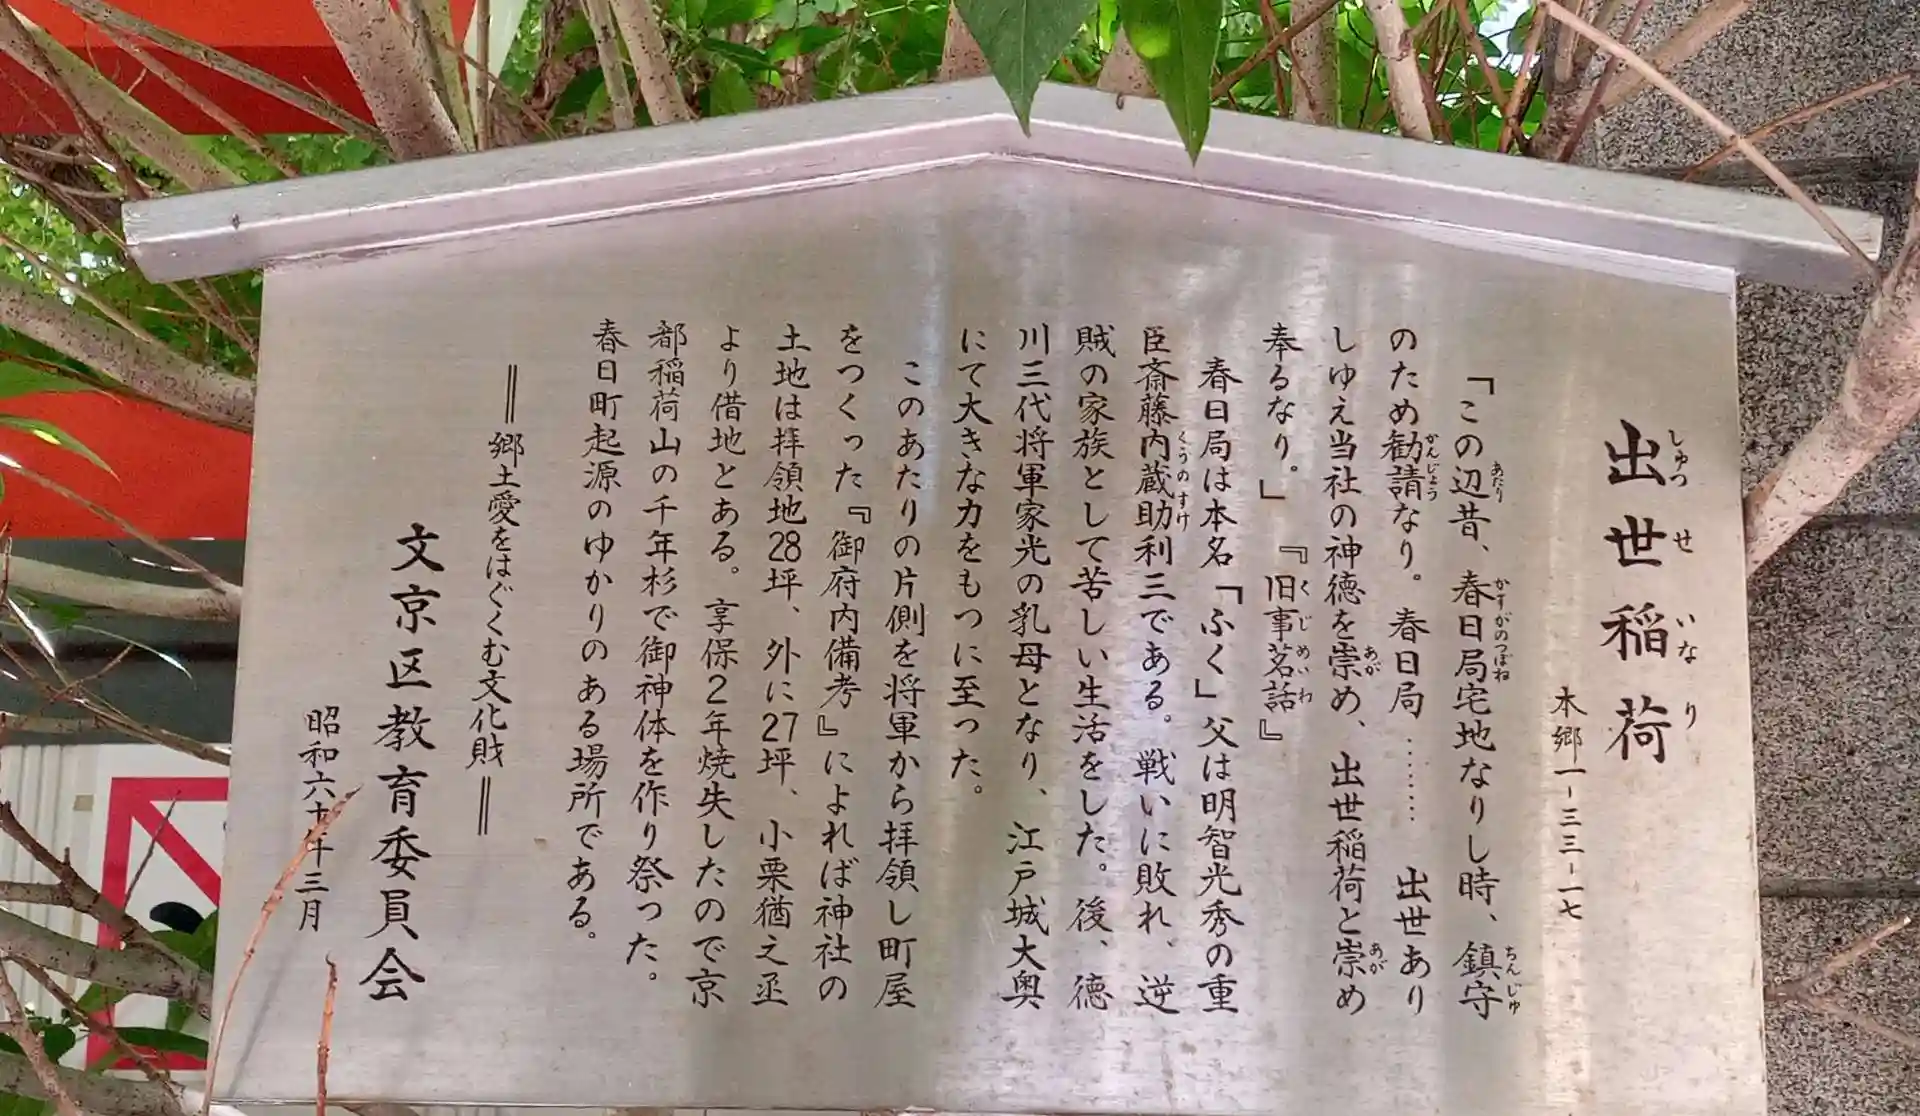 出世稲荷
本郷一-三三-一七
「この辺昔、春日局宅地なりし時、鎮守
のため勧請なり。春日局……出世あり
しゆえ当社の神徳を崇め、出世稲荷と崇め
奉るなり。」『旧事茗話』
春日局は本名「ふく」父は明智光秀の重
臣斎藤内蔵助利三である。戦いに敗れ、逆
賊の家族として苦しい生活をした。後、徳
川三代将軍家光の乳母となり、江戸城大奥
にて大きな力をもつに至った。
このあたりの片側を将軍から拝領し町屋
をつくった『御府内備考』によれば神社の
土地は拝領地28坪、外に27坪、小栗猶之丞
より借地とある。享保2年焼失したので京
都稲荷山の千年杉で御神体を作り祭った。
春日町起源のゆかりのある場所である。
＝郷土愛をはぐくむ文化財＝
文京区教育委員会
昭和六十年三月